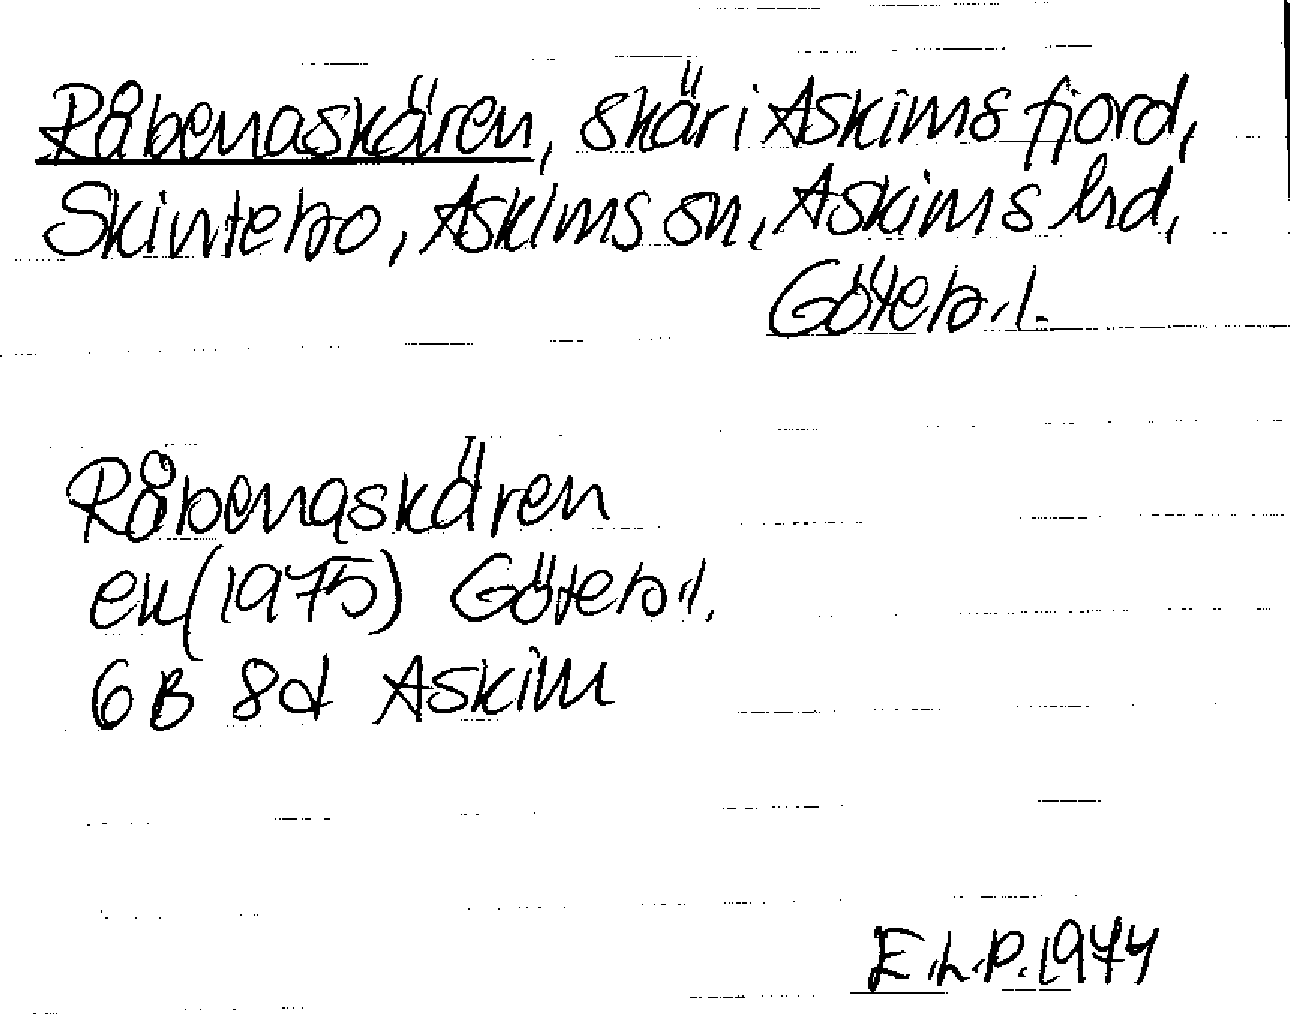 Råbenaskären, skär i Askims fjord,
Skintebo, Askims sn, Askims hd,
Göteb. l.
Råbenaskären
ek (1975) Göteb. l.
6B 8d Askim
E.L.P. 1974